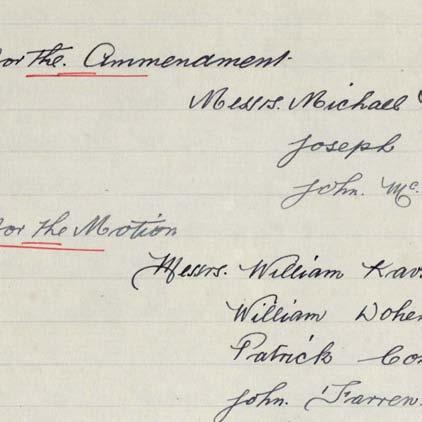 or the. Ammendment.
Messrs. Michael
Joseph
John. Mc.
or the Motion
Messrs. William Kav
William Doher
Patrick Con
John. Farren.